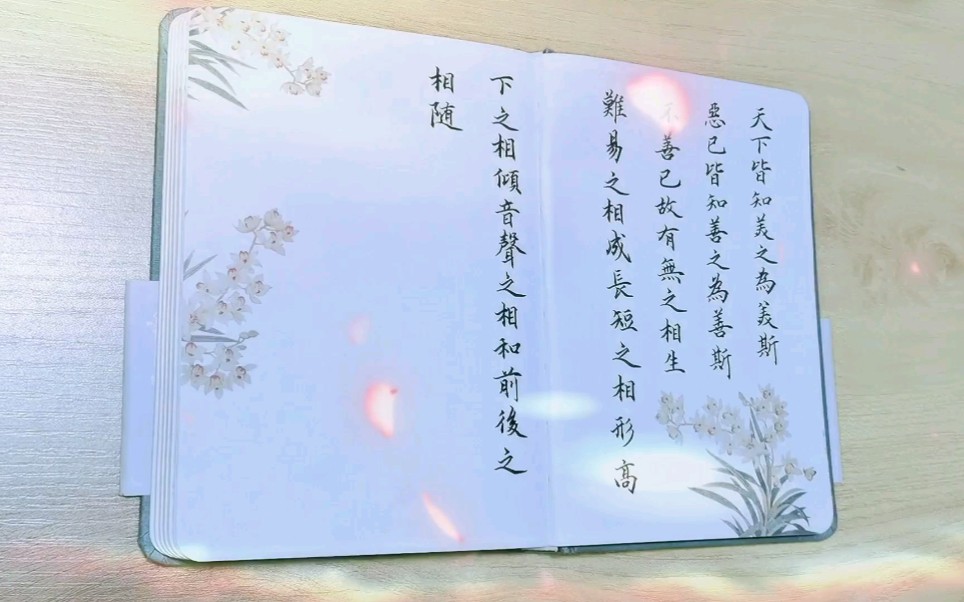 天下皆知美之為美斯
惡已皆知善之為善斯
不善已故有無之相生
難易之相成長短之相形高
下之相傾音聲之相和前後之
相随